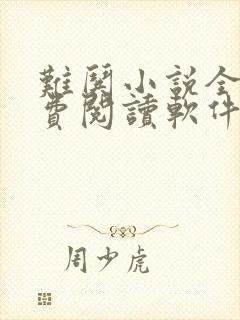 難哭小说全
費閱讀軟件
周少虎